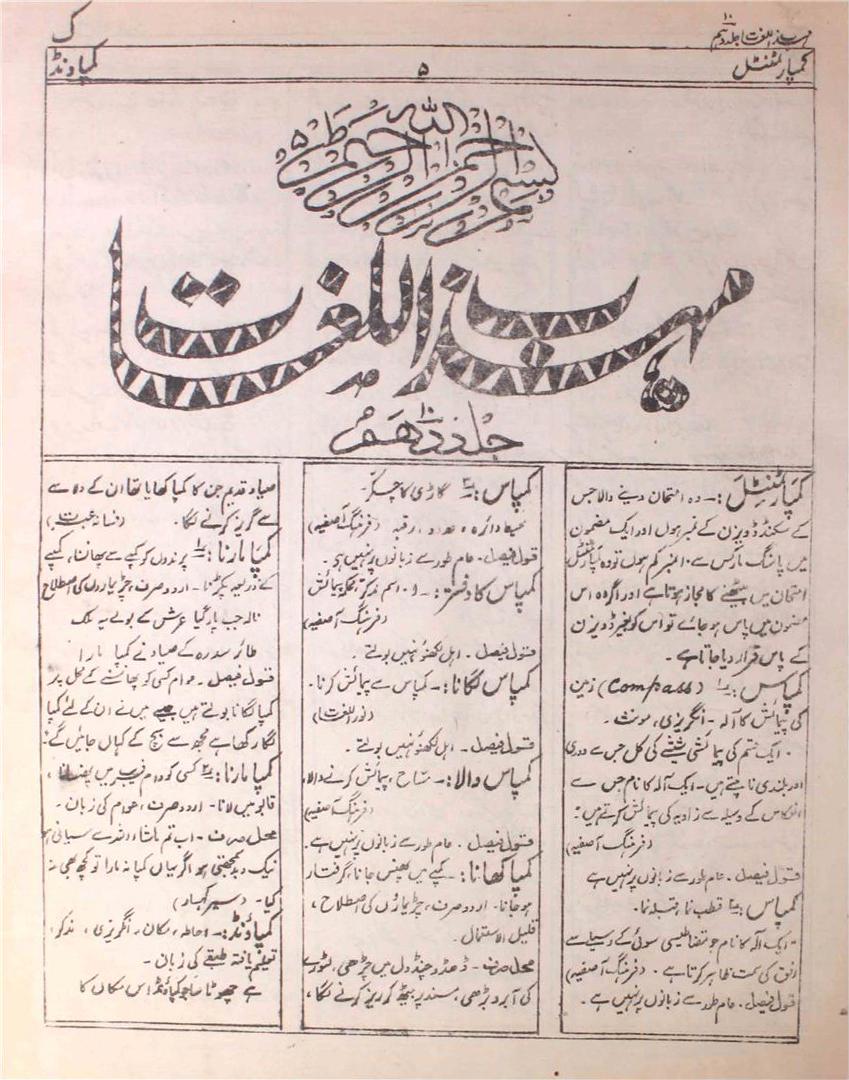 مہذب اللغت جلد دہم ۱۰
ک
کمپارٹمنٹل
۵
کمپاونڈ
بسم اللہ الرحمن الرحیم
مہذب اللغت
جلد دہم ۱۰
کمپارٹمنٹل :۔ وہ امتحان دینے والا جس
کے سکنڈ ڈویزن کے نمبر ہوں اور ایک مضمون
میں پاسنگ مارکس سے ۱۰ نمبر کم ہوں تو وہ کمپارٹمنٹل
امتحان میں بیٹھنے کا مجاز ہوتا ہے اور اگر وہ اس
مضمون میں پاس ہو جائے تو اس کو بغیر ڈویزن
کے پاس قرار دیا جاتا ہے۔
کمپاس :۱ (Compass) زمین
کی پیمائش کا آلہ۔ انگریزی، مونث۔
۔ ایک قسم کی پیمائشی شیشے کی کل جس سے دوری
اور بلندی ناپتے ہیں۔ ایک آلہ کا نام جس سے
انعکاس کے وسیلہ سے زاویہ کی پیمائش کرتے ہیں۔
(فرہنگ آصفیہ)
قول فیصل۔ عام طور سے زبانوں پر نہیں ہے
کمپاس :۲ قطب نما، قبلہ نما۔
۔ ایک آلہ کا نام جو مقناطیسی سوئی کے وسیلے سے
افق کی سمت ظاہر کرتا ہے۔ (فرہنگ آصفیہ)
قول فیصل۔ عام طور سے زبانوں پر نہیں ہے۔
کمپاس :۳ گاڑی کا چکر۔
محیط دائرہ، حدود، رقبہ (فرہنگ آصفیہ)
قول فیصل۔ عام طور سے زبانوں پر نہیں ہے۔
کمپاس کا دفتر :۔ ۱۰ اسم مذکر، محکمہ پیمائش
(فرہنگ آصفیہ)
قول فیصل۔ اہل لکھنؤ نہیں بولتے۔
کمپاس لگانا :۔ کمپاس سے پیمائش کرنا۔
(نور اللغات)
قول فیصل۔ اہل لکھنؤ نہیں بولتے۔
کمپاس والا :۔ مسّاح، پیمائش کرنے والا،
(فرہنگ آصفیہ)
قول فیصل۔ عام طور سے زبانوں پر نہیں ہے۔
کمپا کھانا :۔ کمپے میں پھنس جانا، گرفتار
ہو جانا۔ اردو صرف، چڑیماروں کی اصطلاح،
قلیل الاستعمال۔
محل صرف۔ ڈھڈو چنڈول میں چڑھی، لٹورے
کی آبرو بڑھی، مسند پر بیٹھ کر ریز کرنے لگا،
صیاد قدیم جن کا کمپا کھایا تھا ان کے
سے گریز کرنے لگا۔ (فسانہ عبرت)
کمپا مارنا :۱ پرندوں کو کمپے سے پھانسنا، کمپے
کے ذریعہ پکڑنا۔ اردو صرف، چڑیماروں کی اصطلاح
نالہ جب پار گیا عرش کے بولے یہ ملک
طائر سدرہ کے صیاد نے کمپا مارا
قول فیصل۔ عوام کسی کو پھانسنے کے محل پر
کمپا لگانا بولتے ہیں جیسے میں نے ان کے لئے کمپا
لگا رکھا ہے مجھ سے بچ کے کہاں جائیں گے۔
کمپا مارنا :۲ کسی کو دام فریب میں پھنسانا،
قابو میں لانا۔ اردو صرف، عوام کی زبان۔
محل صرف۔ اب تم ماشاء اللہ سے سیانی ہو
نیک و بد سمجھتی ہو اگر یہاں کمپا نہ مارا تو کچھ بھی نہ
کیا۔ (سیر کہسار)
کمپاؤنڈ :۔ احاطہ، مکان۔ انگریزی، مذکر،
تعلیم یافتہ طبقے کی زبان۔
ہے چھوٹا سا جو کمپاؤنڈ اس مکاں کا